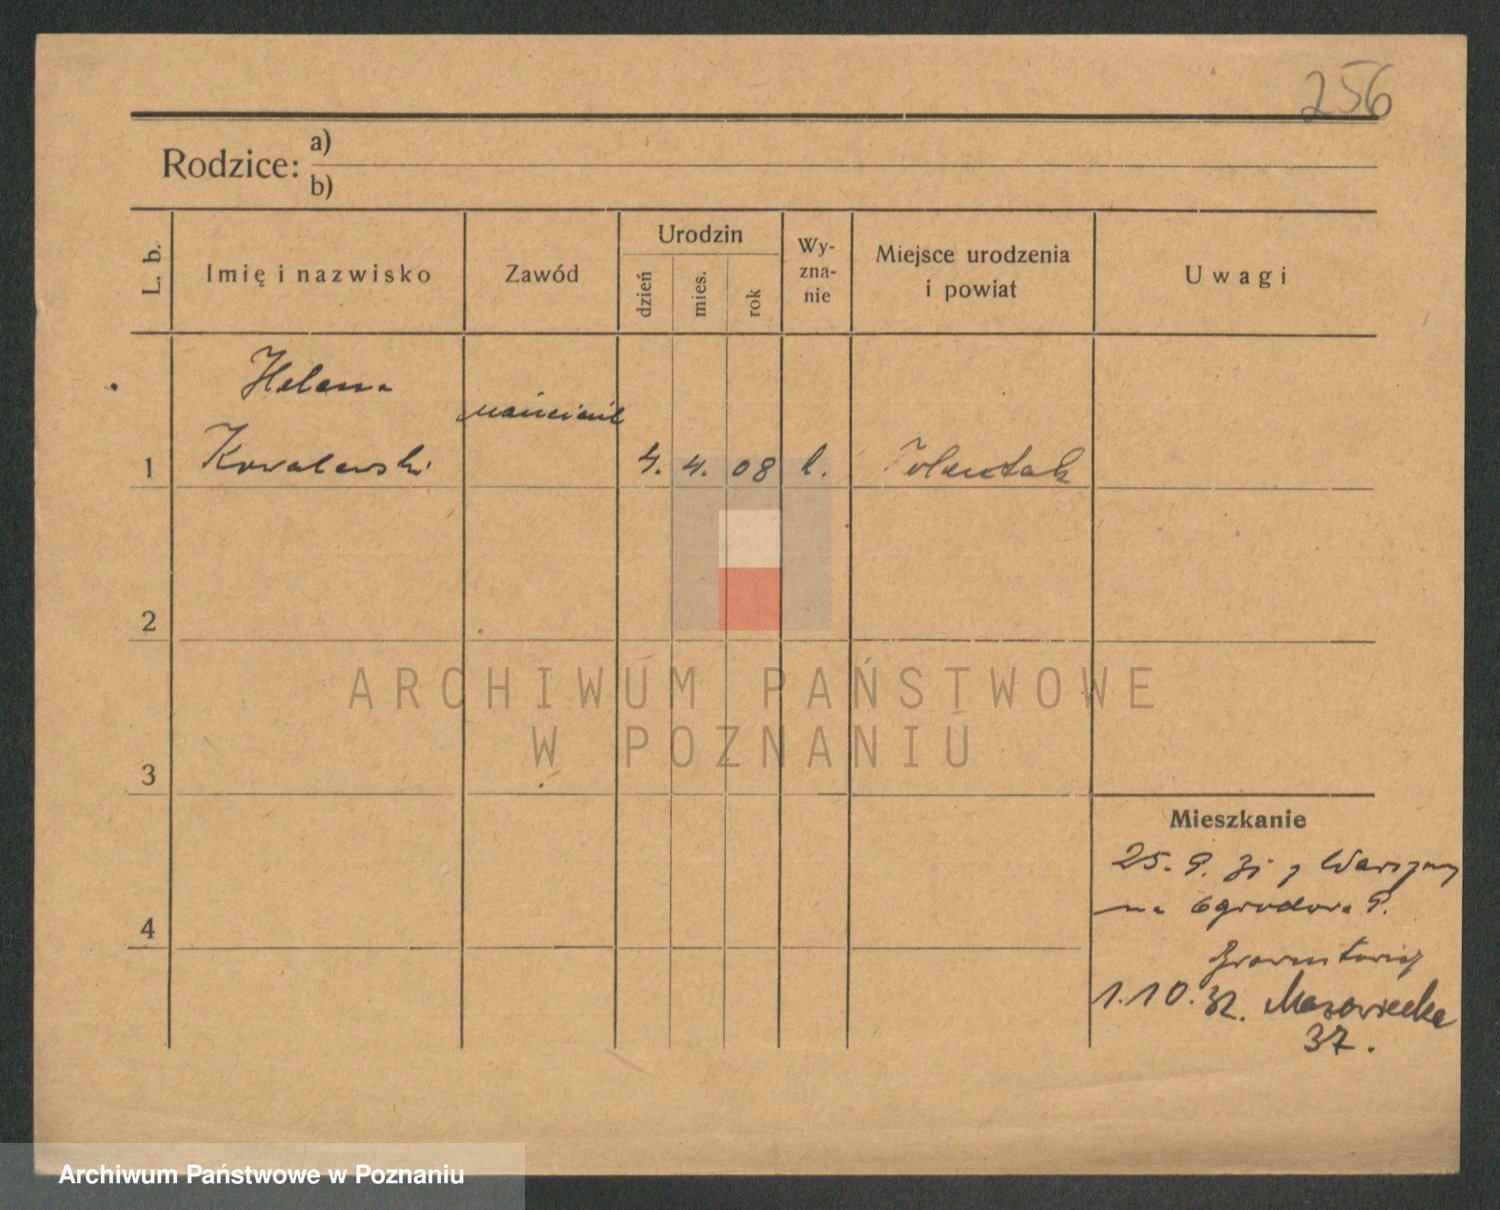 256
Rodzice: a)
b)
L. b. Imię i nazwisko Zawód Urodzin dzień mies. rok Wy-zna-nie Miejsce urodzenia i powiat Uwagi
Helena
1 Kowalewski 4. 4. 08 l.
2
ARCHIWUM PAŃSTWOWE
W POZNANIU
3
Mieszkanie
25. 9. 31 z Warszawy
na Ogrodowa 9.
4
1.10.32. Mazowiecka
37.
Archiwum Państwowe w Poznaniu